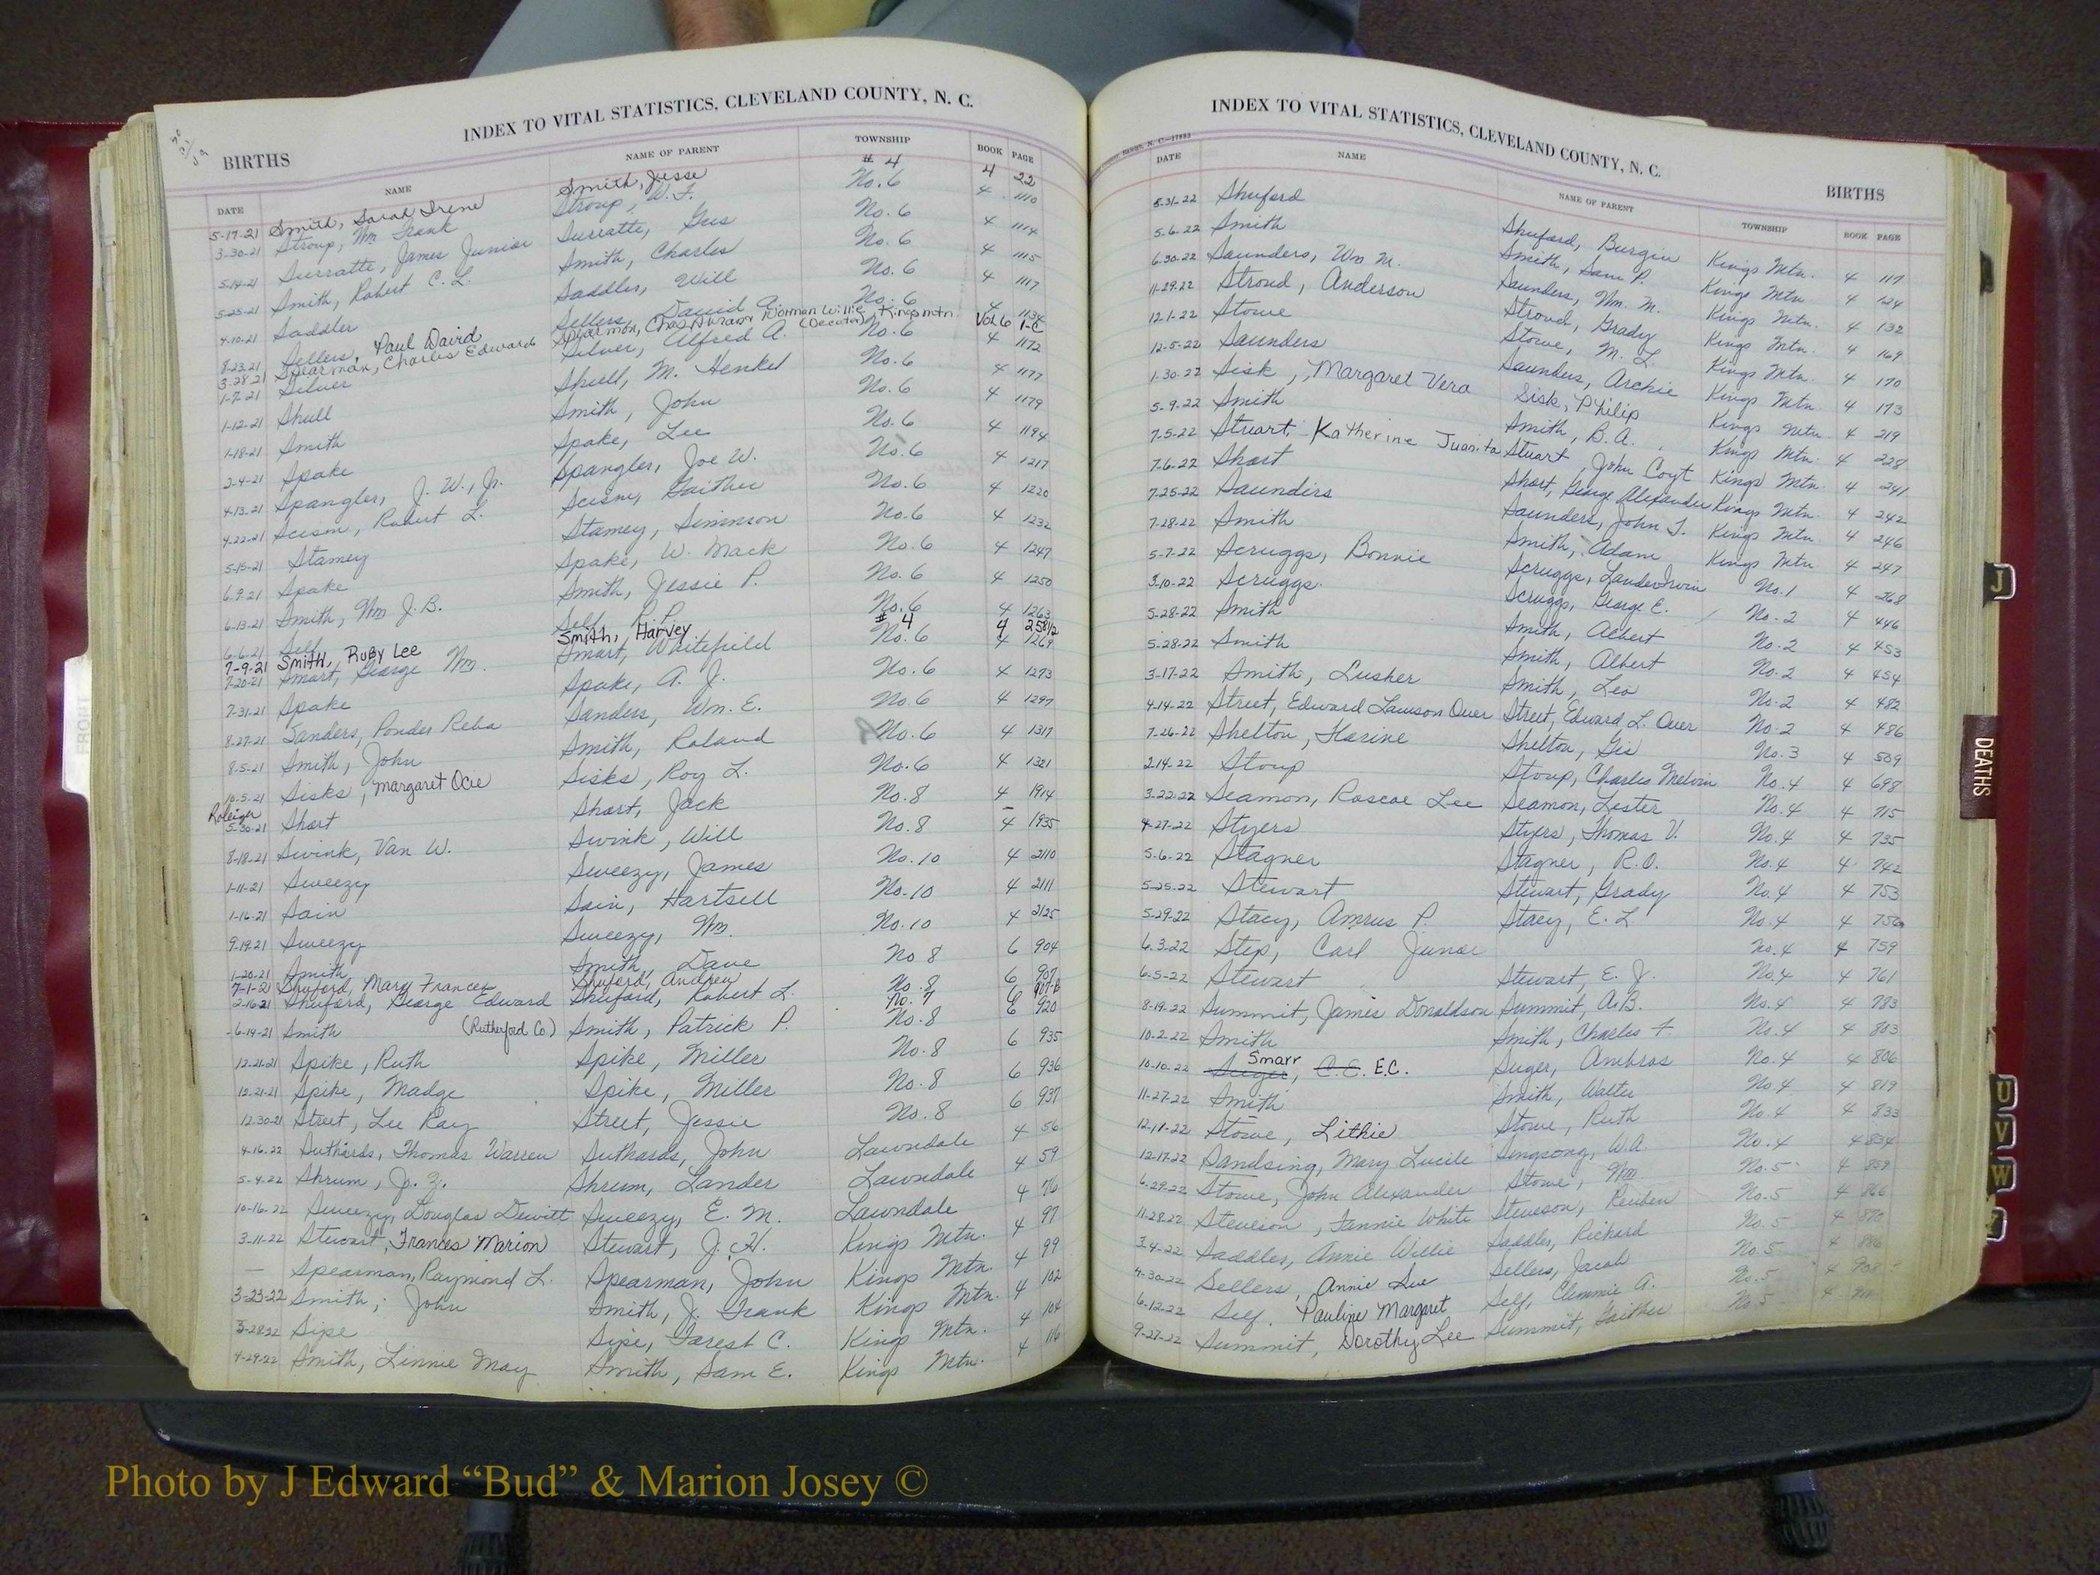 INDEX TO VITAL STATISTICS, CLEVELAND COUNTY, N. C.
BIRTHS
DATE NAME NAME OF PARENT TOWNSHIP BOOK PAGE
5-17-21 Smith, Sarah Irene Smith, Jesse # 4 4 22
3-30-21 Stroup, Wm Frank Stroup, W. F. No. 6 4 1110
5-14-21 Surratte, James Junior Surratte, Gus No. 6 4 1114
5-25-21 Smith, Robert C. L. Smith, Charles No. 6 4 1115
4-10-21 Saddler Saddler, Will No. 6 4 1117
8-23-21 Sellers, Paul David Sellers, David A. No. 6 4 1134
3-28-21 Spearman, Charles Edward Spearman, Chas Kings mtn Vol 6 1-C
1-7-21 Silver Silver, Alfred A. No. 6 4 1172
1-12-21 Shull Shull, M. Henkel No. 6 4 1177
1-18-21 Smith Smith, John No. 6 4 1179
2-4-21 Spake Spake, Lee No. 6 4 1194
4-13-21 Spangler, J. W., Jr. Spangler, Joe W. No. 6 4 1217
4-22-21 Scism, Robert L. Scism, Gaither No. 6 4 1220
5-15-21 Stamey Stamey, Simmson No. 6 4 1232
6-9-21 Spake Spake, W. Mack No. 6 4 1247
6-13-21 Smith, Wm J. B. Smith, Jessie P. No. 6 4 1250
6-6-21 Self Self No. 6 4 1263
7-9-21 Smith, Ruby Lee Smith, Harvey # 4 4 258 1/2
7-20-21 Smart, George Wm. Smart, Whitefield No. 6 4 1269
7-31-21 Spake Spake, A. J. No. 6 4 1293
8-27-21 Sanders, Ponder Reba Sanders, Wm. E. No. 6 4 1297
8-5-21 Smith, John Smith, Roland No. 6 4 1317
10-5-21 Sisks, Margaret Ocie Sisks, Roy L. No. 6 4 1321
Raleigh
5-30-21 Short Short, Jack No. 8 4 1914
8-18-21 Swink, Van W. Swink, Will No. 8 4 1935
1-11-21 Sweezy Sweezy, James No. 10 4 2110
1-16-21 Sain Sain, Hartsell No. 10 4 2111
9-19-21 Sweezy Sweezy, Wm. No. 10 4 2125
1-20-21 Smith Smith, Dave No 8 6 904
7-1-21 Shuford, Mary Frances Shuford, Andrew No. 8 6 907
2-16-21 Shuford, George Edward Shuford, Robert L. No. 7 6 907-B
6-14-21 Smith (Rutherford Co.) Smith, Patrick P. No. 8 6 920
12-21-21 Spike, Ruth Spike, Miller No. 8 6 935
12-21-21 Spike, Madge Spike, Miller No. 8 6 936
12-30-21 Street, Lee Ray Street, Jessie No. 8 6 937
4-16-22 Suthards, Thomas Warren Suthards, John Lawndale 4 56
5-4-22 Shrum, J. Z. Shrum, Lander Lawndale 4 59
10-16-22 Sweezy, Douglas Dewitt Sweezy, E. M. Lawndale 4 76
3-11-22 Stewart, Frances Marion Stewart, J. H. Kings Mtn. 4 97
— Spearman, Raymond L. Spearman, John Kings Mtn. 4 99
3-23-22 Smith, John Smith, J. Frank Kings Mtn. 4 102
3-28-22 Sipe Sipe, Forest C. Kings Mtn. 4 104
4-29-22 Smith, Linnie May Smith, Sam E. Kings Mtn. 4 116
INDEX TO VITAL STATISTICS, CLEVELAND COUNTY, N. C.
BIRTHS
DATE NAME NAME OF PARENT TOWNSHIP BOOK PAGE
5-31-22 Shuford Shuford, Burgin Kings Mtn. 4 117
5-6-22 Smith Smith, Sam P. Kings Mtn 4 124
6-30-22 Saunders, Wm M. Saunders, Wm. M. Kings Mtn. 4 132
11-29-22 Stroud, Anderson Stroud, Grady Kings Mtn. 4 169
12-1-22 Stowe Stowe, M. L. Kings Mtn. 4 170
12-5-22 Saunders Saunders, Archie Kings Mtn. 4 173
1-30-22 Sisk, Margaret Vera Sisk, Philip Kings Mtn. 4 219
5-9-22 Smith Smith, B. A. Kings Mtn. 4 228
7-5-22 Stuart, Katherine Juanita Stuart, John Coyt Kings Mtn. 4 241
7-6-22 Short Short, George Alexander Kings Mtn. 4 242
7-25-22 Saunders Saunders, John T. Kings Mtn. 4 246
7-28-22 Smith Smith, Adam Kings Mtn. 4 247
5-7-22 Scruggs, Bonnie Scruggs, Lander Irvin No. 1 4 268
3-10-22 Scruggs Scruggs, George E. No. 2 4 446
5-28-22 Smith Smith, Albert No. 2 4 453
5-28-22 Smith Smith, Albert No. 2 4 454
3-17-22 Smith, Lusher Smith, Leo No. 2 4 482
4-14-22 Street, Edward Lawson Over Street, Edward L. Over No. 2 4 486
7-26-22 Shelton, Florine Shelton, Gus No. 3 4 509
2-14-22 Stoup Stoup, Charles Melvin No. 4 4 698
3-22-22 Seamon, Roscoe Lee Seamon, Lester No. 4 4 715
4-27-22 Styers Styers, Thomas V. No. 4 4 735
5-6-22 Stagner Stagner, R. O. No. 4 4 742
5-25-22 Stewart Stewart, Grady No. 4 4 753
5-29-22 Stacy, Amrus P. Stacy, E. L No. 4 4 756
6-3-22 Step, Carl Junor No. 4 4 759
6-5-22 Stewart Stewart, E. J. No. 4 4 761
8-19-22 Summit, James Donaldson Summit, A. B. No. 4 4 783
10-2-22 Smith Smith, Charles F. No. 4 4 803
10-10-22 Suger, C. E. Smarr E.C. Suger, Ambros No. 4 4 806
11-27-22 Smith Smith, Walter No. 4 4 819
12-11-22 Stowe, Lithie Stowe, Ruth No. 4 4 833
12-17-22 Sandsing, Mary Lucile Sengsong, W. A. No. 4 4 834
6-29-22 Stowe, John Alexander Stowe, Wm No. 5 4 859
11-28-22 Steveson, Fannie White Steveson, Reuben No. 5 4 866
3-4-22 Saddler, Annie Willie Saddler, Richard No. 5 4
4-30-22 Sellers, Annie Sue Sellers, Jacob No. 5 4 886
6-12-22 Self, Pauline Margaret Self, Clemmie A. No. 5 4 908
9-27-22 Summit, Dorothy Lee Summit, Gaither No. 5 4
FRONT
J
DEATHS
U
V
W
Photo by J Edward “Bud” & Marion Josey ©